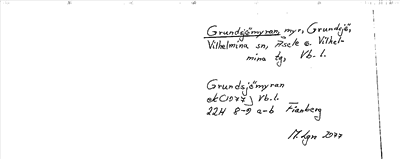 Grundsjömyran myr, Grundsjö,
Vilhelmina sn, Åsele o. Vilhel-
mina tg, Vb. l.
Grundsjömyran
ek(1977) Vb. l.
22H 8-9 a-b Fianberg
M. Lgn 2077